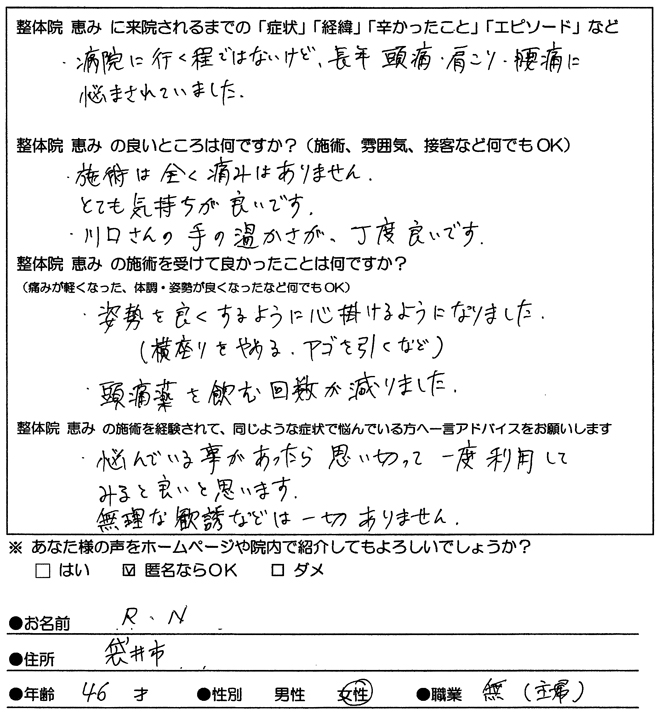 整体院 恵み に来院されるまでの「症状」「経緯」「辛かったこと」「エピソード」など
・病院に行く程ではないけど、長年 頭痛・肩こり・腰痛に
悩まされていました.
整体院 恵み の良いところは何ですか？（施術、雰囲気、接客など何でもOK）
・施術は全く痛みはありません.
とても気持ちが良いです.
・川口さんの手の温かさが、丁度良いです.
整体院 恵み の施術を受けて良かったことは何ですか？
（痛みが軽くなった、体調・姿勢が良くなったなど何でもOK）
・姿勢を良くするように心掛けるようになりました.
（横座りをやめる. アゴを引くなど）
・頭痛薬を飲む回数が減りました.
整体院 恵み の施術を経験されて、同じような症状で悩んでいる方へ一言アドバイスをお願いします
・悩んでいる事があったら 思い切って 一度利用して
みると良いと思います.
無理な勧誘などは一切ありません.
※ あなた様の声をホームページや院内で紹介してもよろしいでしょうか？
□ はい ☑ 匿名ならOK □ ダメ
●お名前 R.N
●住所 袋井市
●年齢 46 才 ●性別 男性 女性 ●職業 無（主婦）